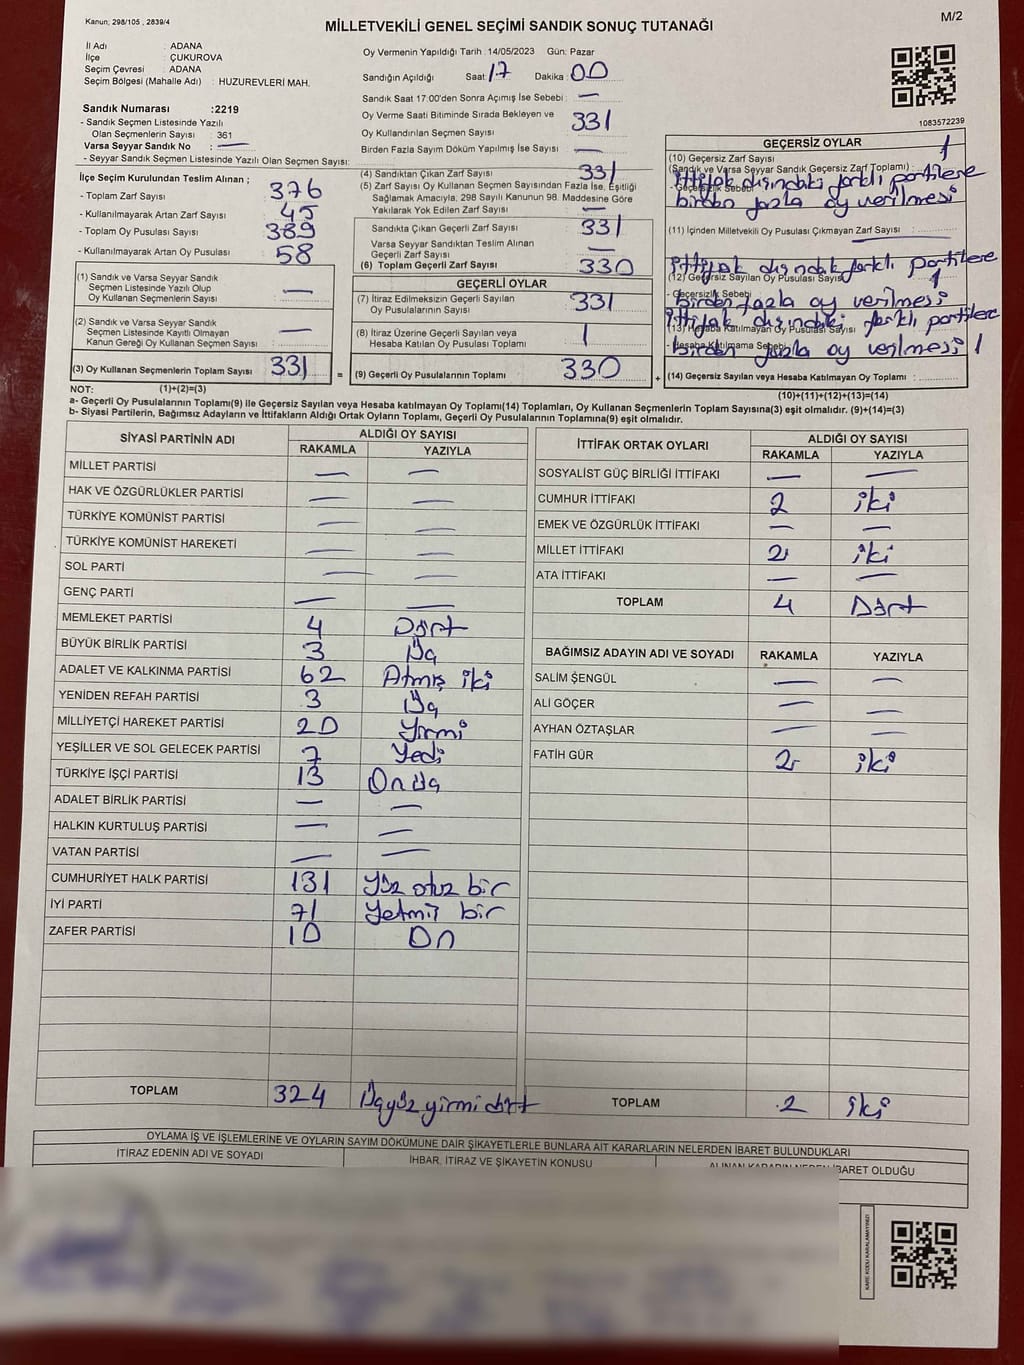 Kanun; 298/105 , 2839/4
MİLLETVEKİLİ GENEL SEÇİMİ SANDIK SONUÇ TUTANAĞI
M/2
İl Adı : ADANA
İlçe : ÇUKUROVA
Seçim Çevresi : ADANA
Seçim Bölgesi (Mahalle Adı) : HUZUREVLERİ MAH.
Sandık Numarası :2219
- Sandık Seçmen Listesinde Yazılı
Olan Seçmenlerin Sayısı : 361
Varsa Seyyar Sandık No : —
- Seyyar Sandık Seçmen Listesinde Yazılı Olan Seçmen Sayısı:
Oy Vermenin Yapıldığı Tarih :14/05/2023 Gün: Pazar
Sandığın Açıldığı Saat: 17 Dakika : 00
Sandık Saat 17:00'den Sonra Açımış İse Sebebi : —
Oy Verme Saati Bitiminde Sırada Bekleyen ve
Oy Kullandırılan Seçmen Sayısı 331
Birden Fazla Sayım Döküm Yapılmış İse Sayısı : —
1083572239
İlçe Seçim Kurulundan Teslim Alınan ;
- Toplam Zarf Sayısı : 376
- Kullanılmayarak Artan Zarf Sayısı : 45
- Toplam Oy Pusulası Sayısı : 389
- Kullanılmayarak Artan Oy Pusulası : 58
(1) Sandık ve Varsa Seyyar Sandık
Seçmen Listesinde Yazılı Olup
Oy Kullanan Seçmenlerin Sayısı : —
(2) Sandık ve Varsa Seyyar Sandık
Seçmen Listesinde Kayıtlı Olmayan
Kanun Gereği Oy Kullanan Seçmen Sayısı : —
(3) Oy Kullanan Seçmenlerin Toplam Sayısı : 331
(4) Sandıktan Çıkan Zarf Sayısı : 331
(5) Zarf Sayısı Oy Kullanan Seçmen Sayısından Fazla İse, Eşitliği
Sağlamak Amacıyla; 298 Sayılı Kanunun 98. Maddesine Göre
Yakılarak Yok Edilen Zarf Sayısı : —
Sandıkta Çıkan Geçerli Zarf Sayısı : 331
Varsa Seyyar Sandıktan Teslim Alınan
Geçerli Zarf Sayısı : —
(6) Toplam Geçerli Zarf Sayısı : 330
GEÇERLİ OYLAR
(7) İtiraz Edilmeksizin Geçerli Sayılan
Oy Pusulalarının Sayısı : 331
(8) İtiraz Üzerine Geçerli Sayılan veya
Hesaba Katılan Oy Pusulası Toplamı : 1
= (9) Geçerli Oy Pusulalarının Toplamı : 330
GEÇERSİZ OYLAR
(10) Geçersiz Zarf Sayısı 1
(Sandık ve Varsa Seyyar Sandık Geçersiz Zarf Toplamı) :
- Geçersizlik Sebebi
İttifak dışındaki farklı partilere
birden fazla oy verilmesi
(11) İçinden Milletvekili Oy Pusulası Çıkmayan Zarf Sayısı : —
İttifak dışındaki farklı partilere
(12) Geçersiz Sayılan Oy Pusulası Sayısı 1
- Geçersizlik Sebebi
birden fazla oy verilmesi
İttifak dışındaki farklı partilere
(13) Hesaba Katılmayan Oy Pusulası Sayısı
- Hesaba Katılmama Sebebi
birden fazla oy verilmesi 1
+ (14) Geçersiz Sayılan veya Hesaba Katılmayan Oy Toplamı :
NOT: (1)+(2)=(3)
(10)+(11)+(12)+(13)=(14)
a- Geçerli Oy Pusulalarının Toplamı(9) ile Geçersiz Sayılan veya Hesaba katılmayan Oy Toplamı(14) Toplamları, Oy Kullanan Seçmenlerin Toplam Sayısına(3) eşit olmalıdır. (9)+(14)=(3)
b- Siyasi Partilerin, Bağımsız Adayların ve İttifakların Aldığı Ortak Oyların Toplamı, Geçerli Oy Pusulalarının Toplamına(9) eşit olmalıdır.
SİYASİ PARTİNİN ADI ALDIĞI OY SAYISI
RAKAMLA YAZIYLA
MİLLET PARTİSİ — —
HAK VE ÖZGÜRLÜKLER PARTİSİ — —
TÜRKİYE KOMÜNİST PARTİSİ — —
TÜRKİYE KOMÜNİST HAREKETİ — —
SOL PARTİ — —
GENÇ PARTİ — —
MEMLEKET PARTİSİ 4 Dört
BÜYÜK BİRLİK PARTİSİ 3 Üç
ADALET VE KALKINMA PARTİSİ 62 Atmış iki
YENİDEN REFAH PARTİSİ 3 Üç
MİLLİYETÇİ HAREKET PARTİSİ 20 Yirmi
YEŞİLLER VE SOL GELECEK PARTİSİ 7 Yedi
TÜRKİYE İŞÇİ PARTİSİ 13 Onüç
ADALET BİRLİK PARTİSİ — —
HALKIN KURTULUŞ PARTİSİ — —
VATAN PARTİSİ — —
CUMHURİYET HALK PARTİSİ 131 Yüz otuz bir
İYİ PARTİ 71 Yetmiş bir
ZAFER PARTİSİ 10 On
TOPLAM 324 Üçyüz yirmi dört
İTTİFAK ORTAK OYLARI ALDIĞI OY SAYISI
RAKAMLA YAZIYLA
SOSYALİST GÜÇ BİRLİĞİ İTTİFAKI — —
CUMHUR İTTİFAKI 2 iki
EMEK VE ÖZGÜRLÜK İTTİFAKI — —
MİLLET İTTİFAKI 2 iki
ATA İTTİFAKI — —
TOPLAM 4 Dört
BAĞIMSIZ ADAYIN ADI VE SOYADI RAKAMLA YAZIYLA
SALİM ŞENGÜL — —
ALİ GÖÇER — —
AYHAN ÖZTAŞLAR — —
FATİH GÜR 2 iki
TOPLAM 2 iki
OYLAMA İŞ VE İŞLEMLERİNE VE OYLARIN SAYIM DÖKÜMÜNE DAİR ŞİKAYETLERLE BUNLARA AİT KARARLARIN NELERDEN İBARET BULUNDUKLARI
İTİRAZ EDENİN ADI VE SOYADI İHBAR, İTİRAZ VE ŞİKAYETİN KONUSU ALINAN KARARIN NEDEN İBARET OLDUĞU
KARE KODU KARALAMAYINIZ!